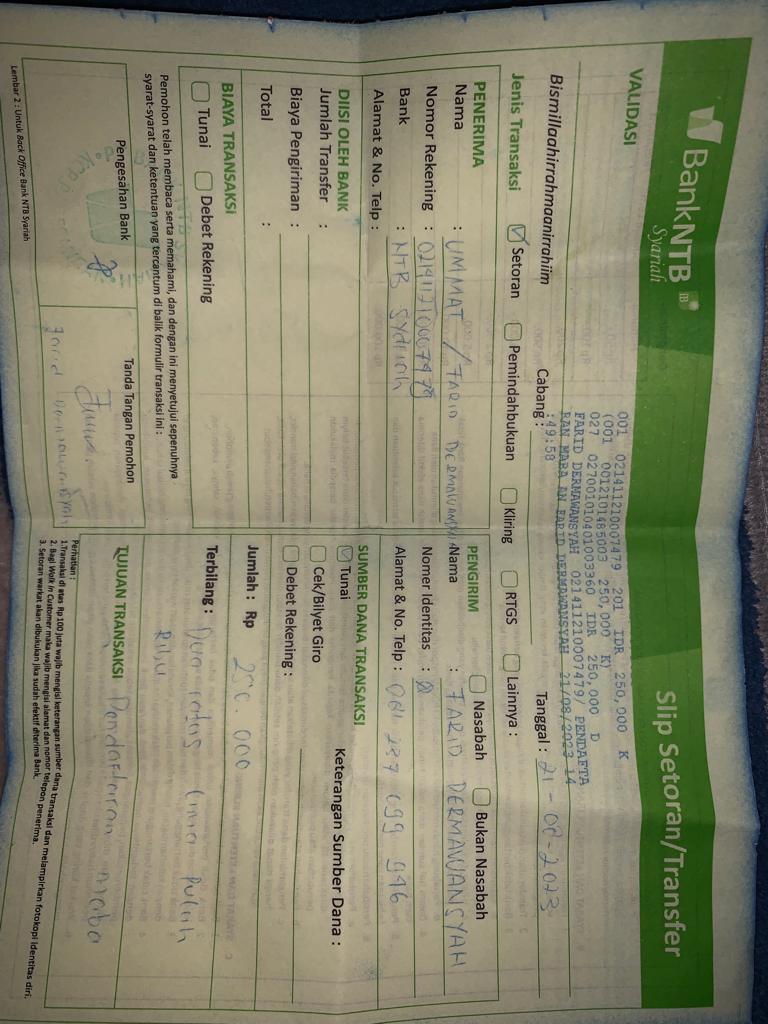 BankNTB
Syariah
Slip Setoran/Transfer
VALIDASI
001 021411210007479 201 IDR 250,000 K
(001 0012101485003 250,000 K)
027 027001010401003360 IDR 250,000 D
FARID DERMAWANSYAH 021411210007479/ PENDAFTA
RAN MABA AN FARID DERMAWANSYAH 21/08/2023 14
:49:58
Bismillaahirrahmaanirrahiim
Cabang :
Tanggal : 21-08-2023
Jenis Transaksi Setoran Pemindahbukuan Kliring RTGS Lainnya :
PENERIMA
Nama : UMMAT / FARID DERMAWANSYAH
Nomor Rekening : 021411210007479
Bank : NTB Syariah
Alamat & No. Telp :
PENGIRIM Nasabah Bukan Nasabah
Nama : FARID DERMAWANSYAH
Nomer Identitas :
Alamat & No. Telp : 081 237 099 946
DIISI OLEH BANK
Jumlah Transfer :
Biaya Pengiriman :
Total :
SUMBER DANA TRANSAKSI
Tunai
Keterangan Sumber Dana :
Cek/Bilyet Giro
Debet Rekening :
Jumlah : Rp 250.000
Terbilang : Dua ratus lima Puluh
Ribu
BIAYA TRANSAKSI
Tunai Debet Rekening
Pemohon telah membaca serta memahami, dan dengan ini menyetujui sepenuhnya
syarat-syarat dan ketentuan yang tercantum di balik formulir transaksi ini :
Pengesahan Bank
Tanda Tangan Pemohon
Farid Dermawansyah
TUJUAN TRANSAKSI Pendaftaran maba
Perhatian :
1.Transaksi di atas Rp 100 juta wajib mengisi keterangan sumber dana transaksi dan melampirkan fotokopi identitas diri.
2. Bagi Walk In Customer maka wajib mengisi alamat dan nomor telepon penerima.
3. Setoran warkat akan dibukukan jika sudah efektif diterima Bank.
Lembar 2 : Untuk Back Office Bank NTB Syariah